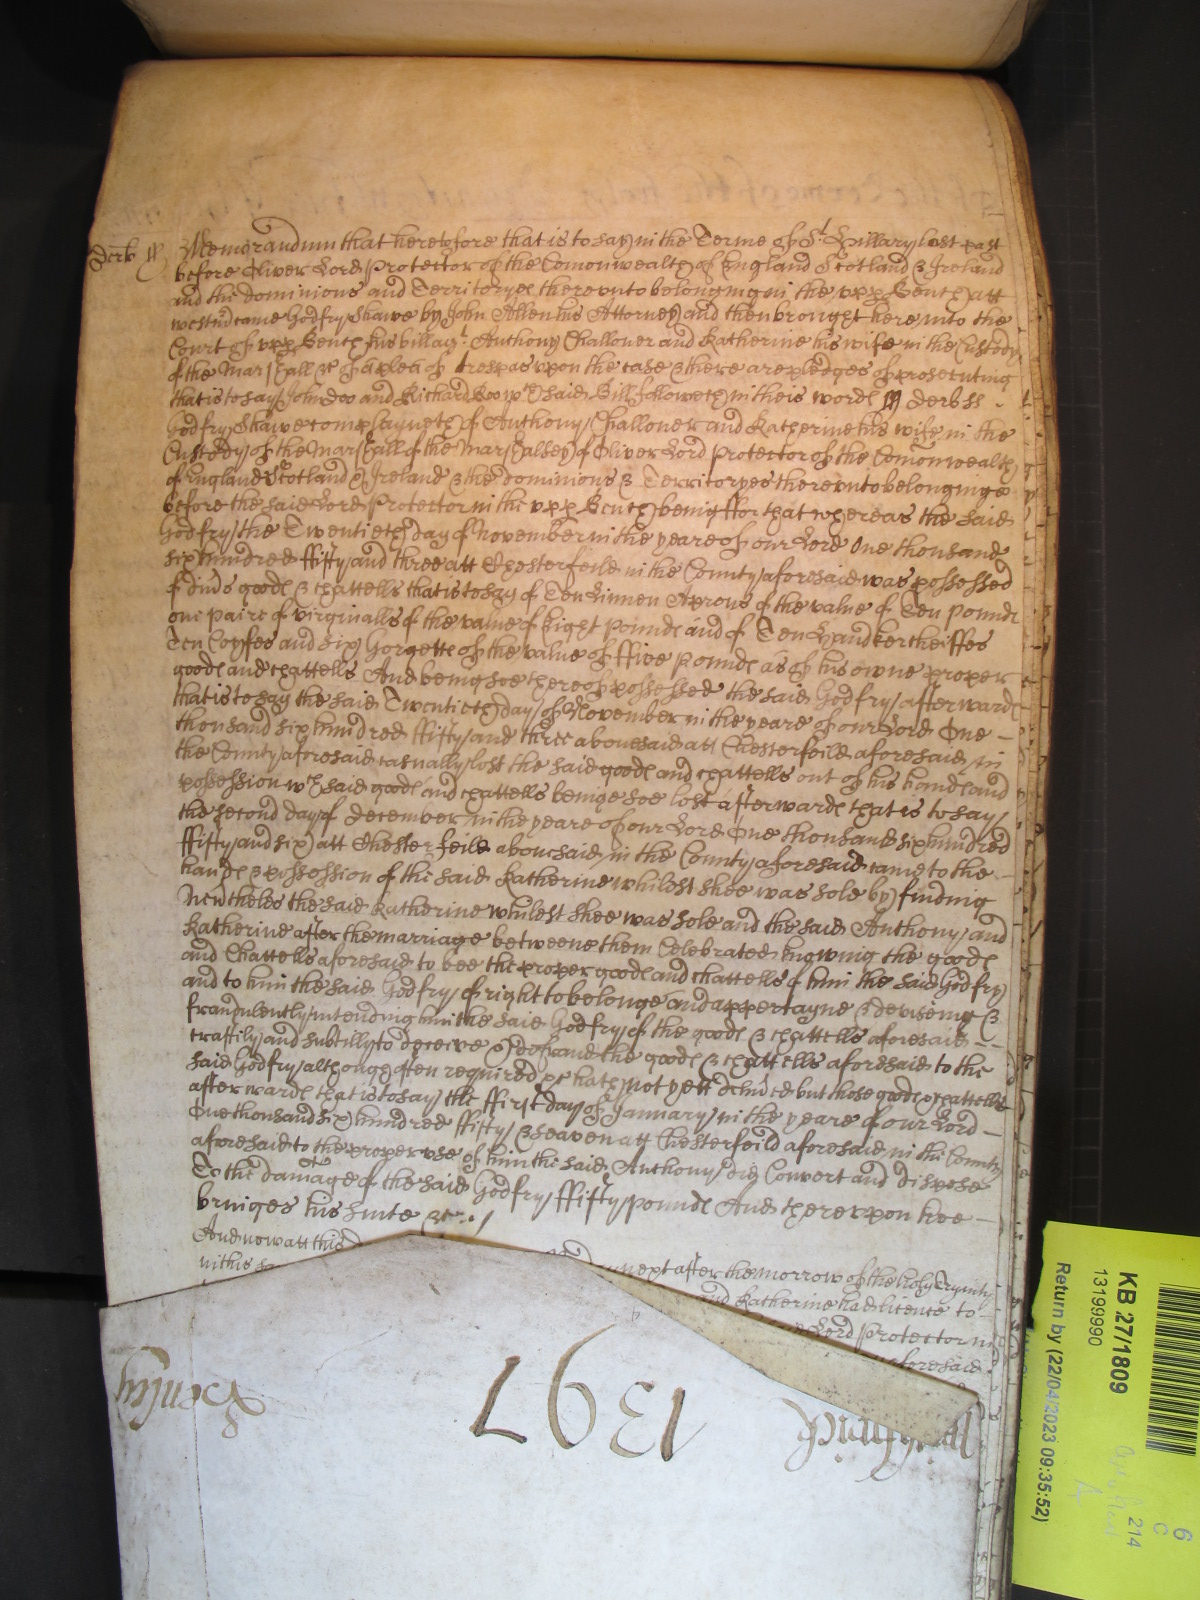 Derb ss Memorandum that heretofore that is to say in the Terme of St. Hillary last past
before Oliver Lord Protector of the Comonwealth of England Scotland & Ireland
and the dominions and Territoryes thereunto belonging in the upp Bench att
westm came Godfry Shawe by John Allen his Attorney and then brought here into the
Court of upp Bench his bill agt. Anthony Challoner and Katherine his wife in the Custody
of the Marshall &c of a plea of trespas upon the case & there are pledges of prosecuting
that is to say John Doo and Richard Roo wch said Bill followeth in theis wordes ss derb ss
Godfry Shawe complayneth of Anthony Challoner and Katherine his wife in the
Custody of the Marshall of the Marshalsey of Oliver Lord Protector of the Comonwealth
of England Scotland & Ireland & the dominions & Territoryes thereunto belonginge
before the said Lord Protector in the upp Bench being ffor that whereas the said
Godfry the Twentieth day of November in the yeare of our Lord One thousand
six hundred ffifty and three att Chesterfeild in the County aforesaid was possessed
of divs goodes & chattells that is to say of Ten Linnen Aprons of the value of Ten poundes
one paire of virginalls of the value of Eight poundes and of Ten Handkercheiffes
Ten Coyfes and six Gorgettes of the value of ffive poundes as of his owne proper
goodes and chattells And being soe thereof possessed the said Godfry afterwardes
that is to say the said Twentieth day of November in the yeare of our Lord One
thousand six hundred ffifty and three abovesaid att Chesterfeild aforesaid in
the County aforesaid casually lost the said goodes and chattells out of his handes and
possession wch said goodes and chattells beinge soe lost afterwardes that is to say
the second day of December in the yeare of our Lord One thousand six hundred
ffifty and six att Chesterfeild abovesaid in the County aforesaid came to the
handes & possession of the said Katherine whilest shee was sole by finding
Nevertheles the said Katherine whilest shee was sole and the said Anthony and
Katherine after the marriage betweene them Celebrated knowing the goodes
and Chattells aforesaid to bee the proper goodes and chattells of him the said Godfry
and to him the said Godfry of right to belonge and appertayne & devising &
fraudulently intending him the said Godfry of the goodes & chattells aforesaid
craftily and subtilly to deceive & defraud the goodes & chattells aforesaid to the
said Godfry although often required &c hath not yett delived but those goodes & chattells
afterwardes that is to say the ffirst day of January in the yeare of our Lord
One thousand six hundred ffifty & seaven att Chesterfeild aforesaid in the County
aforesaid to the proper use of him the said Anthony did Convert and dispose
To the damage of the said Godfry ffifty poundes And thereupon hee
bringes his suite &c.
And now att this next after the morrow of the holy Trynity
in this and Katherine had licence to
Lord Protector in
aforesaid
1397
KB 27/1809
13199990
Return by (22/04/2023 09:35:52)
6
C
214